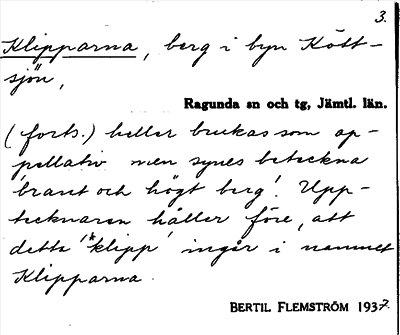 3.
Klipparna, berg i byn Kött-
sjön,
Ragunda sn och tg, Jämtl. län.
(forts.) heller brukas som ap-
pellativ men synes beteckna
'brant och högt berg'. Upp-
tecknaren håller före, att
detta *'klipp' ingår i namnet
Klipparna.
BERTIL FLEMSTRÖM 1937.